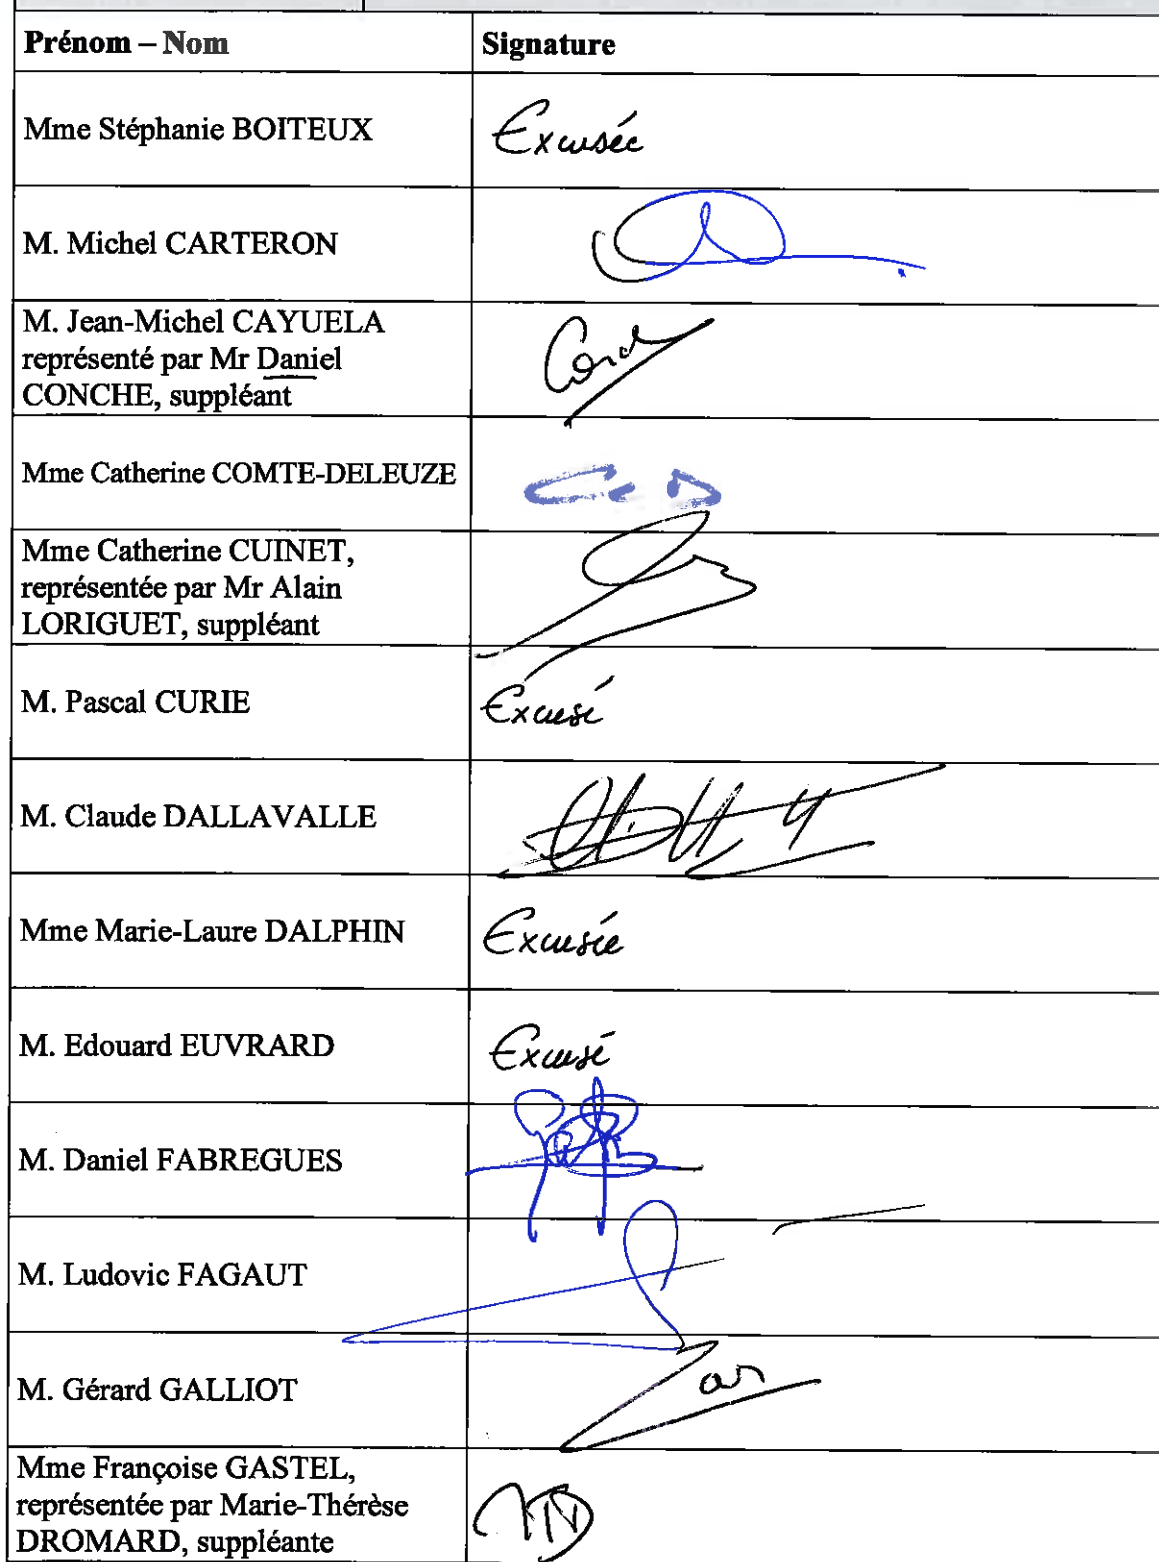 Prénom – Nom Signature
Mme Stéphanie BOITEUX Excusée
M. Michel CARTERON
M. Jean-Michel CAYUELA
représenté par Mr Daniel
CONCHE, suppléant
Mme Catherine COMTE-DELEUZE
Mme Catherine CUINET,
représentée par Mr Alain
LORIGUET, suppléant
M. Pascal CURIE Excusé
M. Claude DALLAVALLE
Mme Marie-Laure DALPHIN Excusée
M. Edouard EUVRARD Excusé
M. Daniel FABREGUES
M. Ludovic FAGAUT
M. Gérard GALLIOT
Mme Françoise GASTEL,
représentée par Marie-Thérèse
DROMARD, suppléante